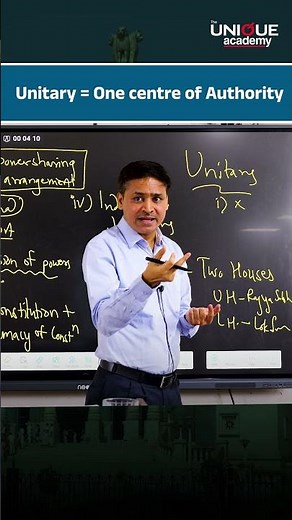 The
UNIQUE
academy
Unitary = One centre of Authority
00 04 10
powersharing
arrangement
iv) In
Unitary
i) x
of powers
Two Houses
UH - Rajya Sabh
LH. - Lok Sa
onstitution +
macy of Constn